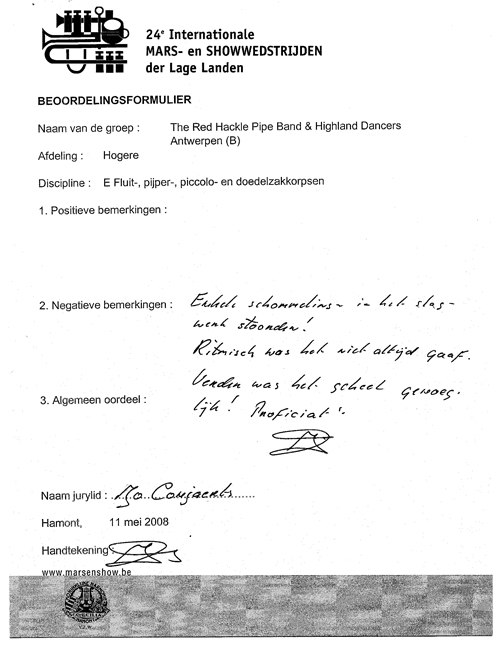 24e Internationale
MARS- en SHOWWEDSTRIJDEN
der Lage Landen
BEOORDELINGSFORMULIER
Naam van de groep : The Red Hackle Pipe Band & Highland Dancers
Antwerpen (B)
Afdeling : Hogere
Discipline : E Fluit-, pijper-, piccolo- en doedelzakkorpsen
1. Positieve bemerkingen :
2. Negatieve bemerkingen : Enkele schommelingen in het slag-
werk stoorden!
Ritmisch was het niet altijd gaaf.
Verder was het geheel genoeg-
3. Algemeen oordeel : lijk! Proficiat!
Naam jurylid : Jo
Hamont, 11 mei 2008
Handtekening :
www.marsenshow.be